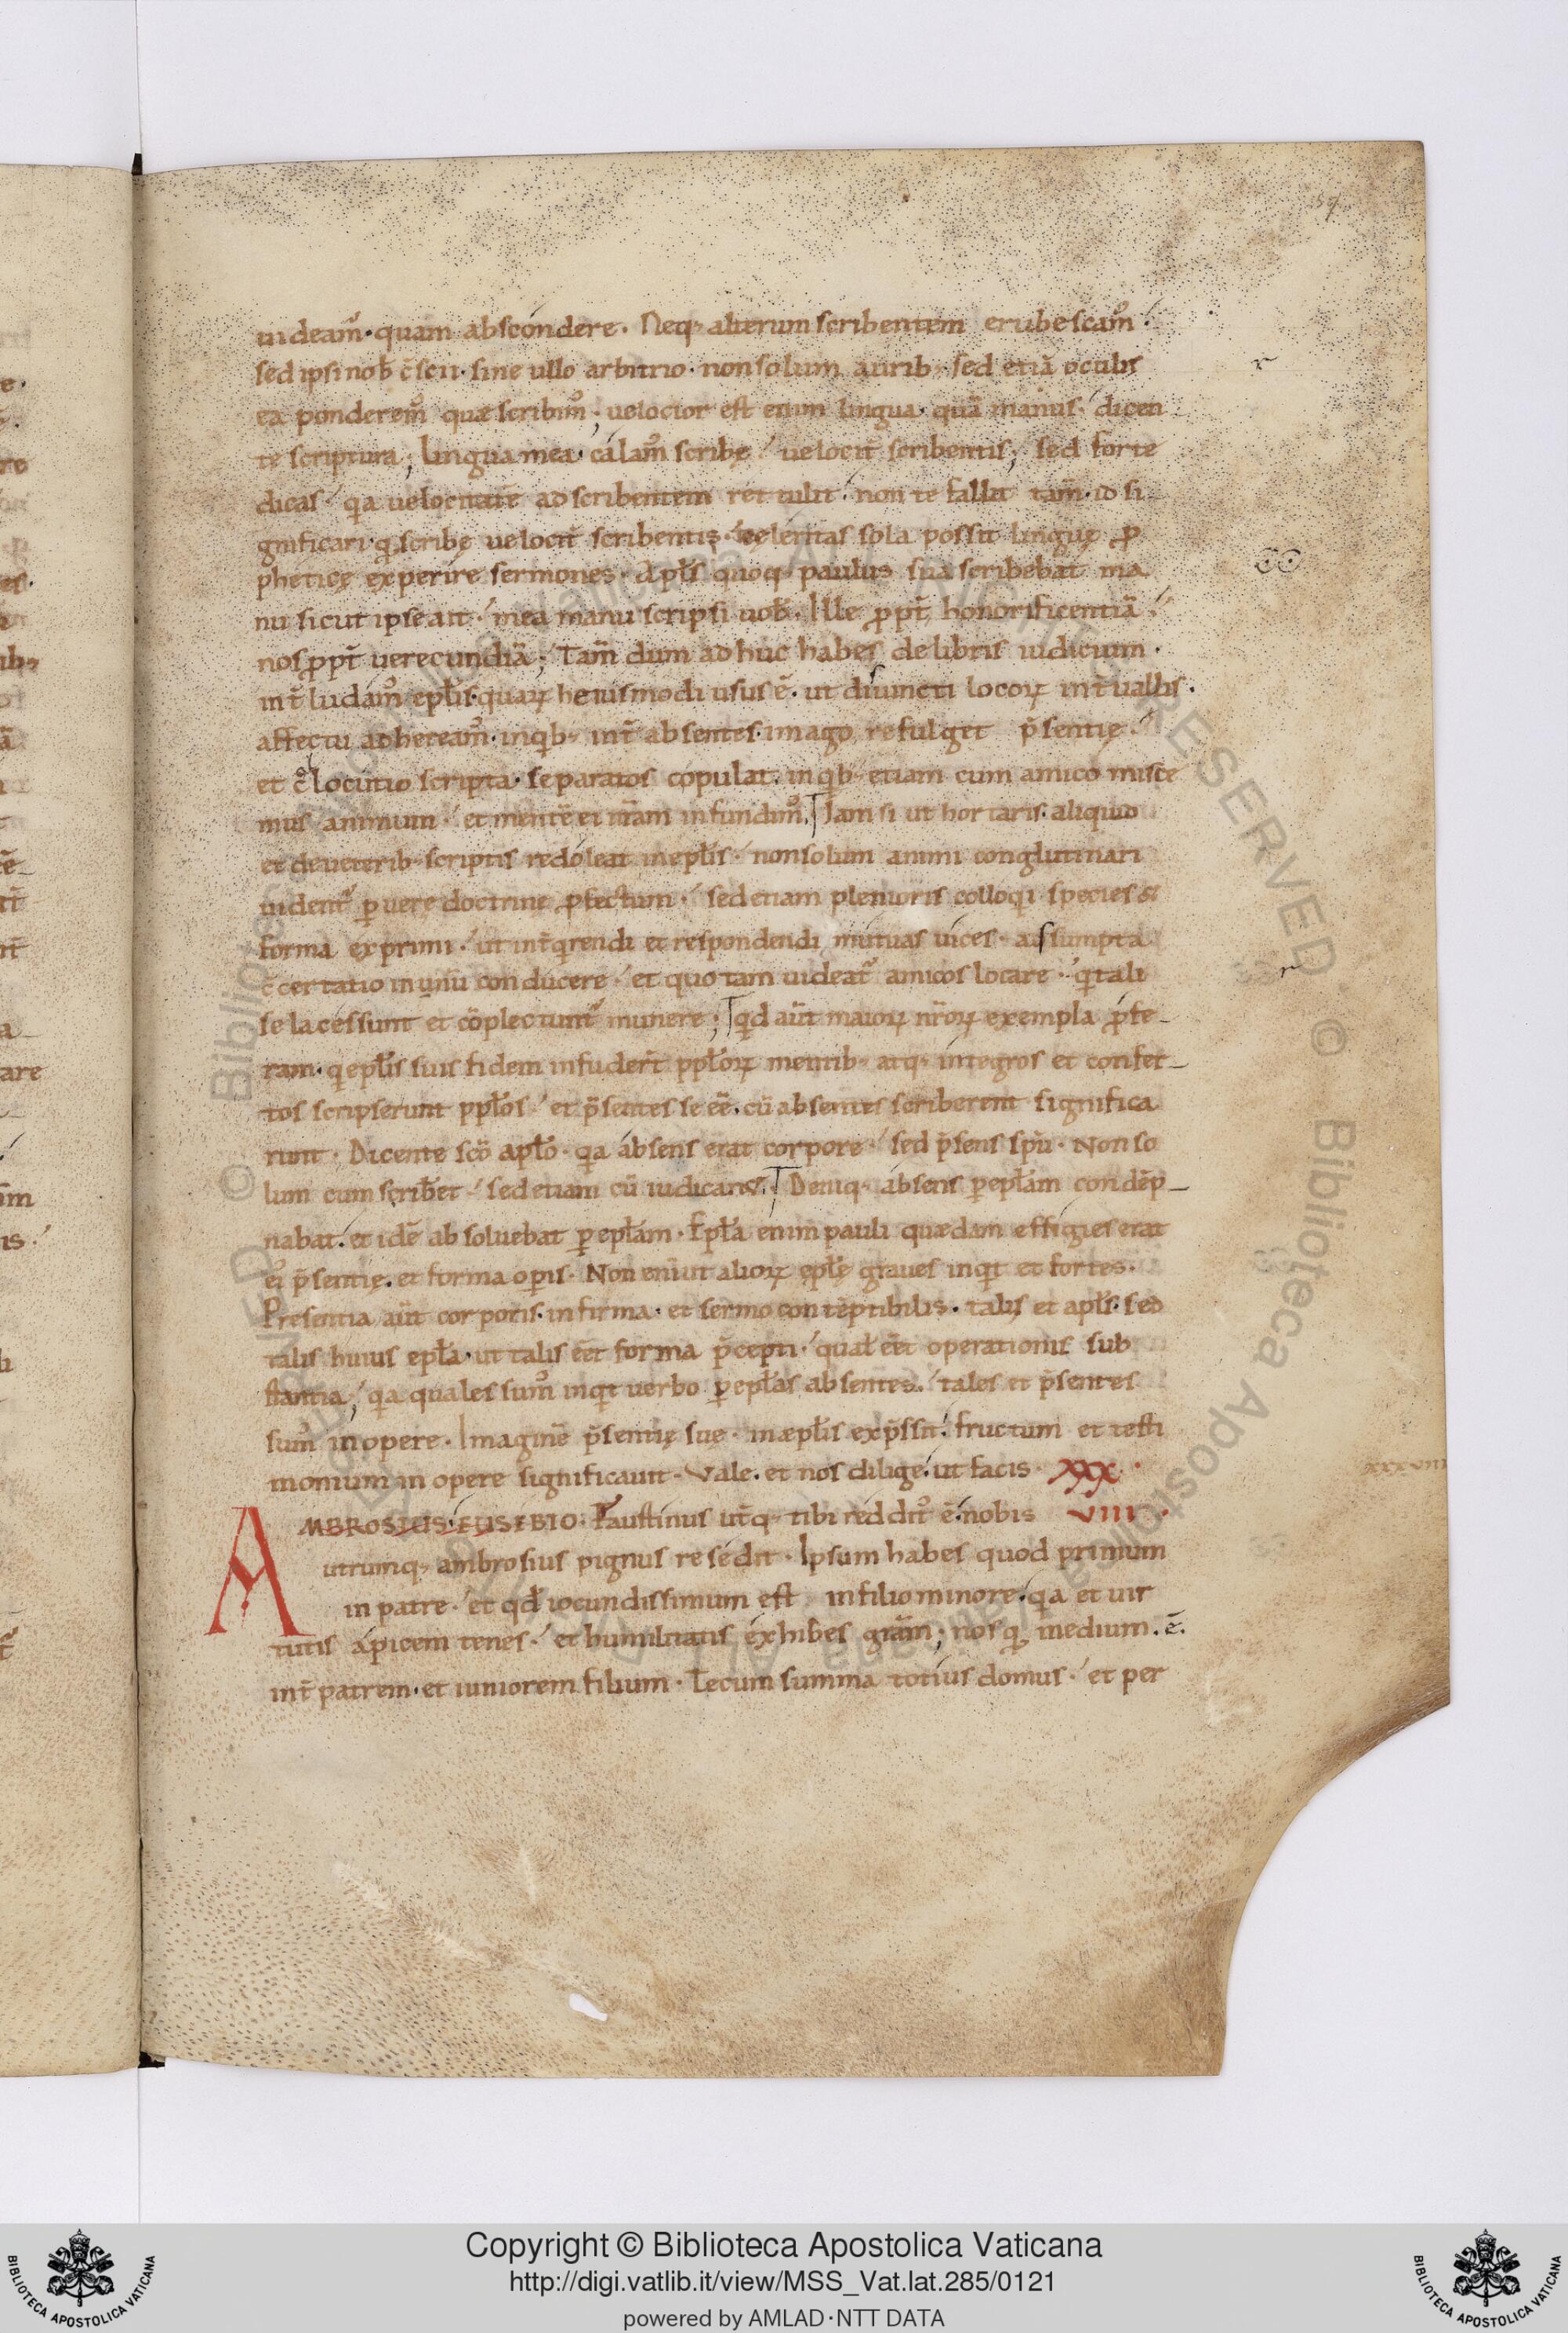 uideam᷒· quam abscondere. Neq; alterum scribentem erubescam᷒.
sed ipsi nob̄ c̄scii· sine ullo arbitrio· non solum aurib; sed etiā oculis
ea ponderem᷒ quæ scribim᷒; uelocior est enim lingua· quā manus· dicen
te scriptura; Lingua mea· calam᷒ scribę· uelocit̄ scribentis; sed forte
dicas· qa uelocitatē ad scribentem rettulit· non te fallit tam̄· id si
gnificari· q scribę uelocit̄ scribentis· celeritas sola possit linguę ꝓ
pheticę experire sermones· Apl̄s quoq; paulus sua scribebat ma
nu sicut ipse ait· mea manu scripsi uob̄· Ille ꝓpt̄ honorificentiā·
nos ꝓpt̄ uerecundiā; Tam̄ dum adhuc habes de libris iudicium·
int̄ ludam᷒ epl̄is· quaꝝ heiusmodi usus ē· ut diiuncti locoꝝ int̄uallis·
affectu adheream᷒· inqb; int̄ absentes· imago refulget p̄sentię·
et c̄locutio scripta· separatos copulat· inqb; etiam cum amico misce
mus animum· et mentē ei n̄ram infundim᷒. Iam si ut hortaris· aliquid
et de ueterib; scriptis redoleat in epl̄is· non solum animi conglutinari
uident᷒ ꝑ uere doctrine ꝓfectum· sed etiam plenioris colloqi species &
forma exprimi· ut int̄qrendi et respondendi mutuas uices· assumpta
c̄certatio in unū conducere· et quo tam uideat᷒ amicos locare· q tali
se lacessunt et cōplectunt᷒ munere; qd aūt maioꝝ nr̄oꝝ exempla ꝓfe-
ram· q epl̄is suis fidem infuder̄t ppl̄oꝝ mentib; atq; integros et confer-
tos scripserunt ppl̄os· et p̄sentes se eē· cū absentes scriberent significa
runt· Dicente sc̄o apl̄o· qa absens erat corpore· sed p̄sens spū· Non so
lum cum scrib̄et· sed etiam cū iudicaret. Deniq; absens ꝑ epl̄am condēp-
nabat· et idē absoluebat ꝑ epl̄am· Epl̄a enim pauli quædam effigies erat
ei᷒ p̄sentię· et forma opis· Non enī ut alioꝝ epl̄ę graues inqt et fortes·
Presentia aūt corporis· infirma· et sermo contēptibilis· talis et apl̄s· sed
talis huius epl̄a· ut talis eēt forma p̄cepti· qual̄ eēt operationis sub
stantia; qa quales sum᷒ inqt uerbo ꝑ epl̄as absentes· tales et p̄sentes
sum᷒ in opere· Imaginē p̄sentię suę· in æpl̄is exp̄ssit· fructum et testi
monium in opere significauit· Vale· et nos dilige· ut facis· XXX·
AMBROSIUS· EUSEBIO· Faustinus ut̄q; tibi reddit᷒ ē· nobis VIIII·
utrumq; ambrosius pignus resedit· Ipsum habes quod primum
in patre· et qd̄ iocundissimum est in filio minore· qa et uir
tutis apicem tenes· et humilitatis exhibes grām; nos q medium· ē·
int̄ patrem· et iuniorem filium· Tecum summa totius domus· et per
XXXVIIII
Copyright © Biblioteca Apostolica Vaticana
http://digi.vatlib.it/view/MSS_Vat.lat.285/0121
powered by AMLAD·NTT DATA
BIBLIOTECA APOSTOLICA VATICANA
BIBLIOTECA APOSTOLICA VATICANA